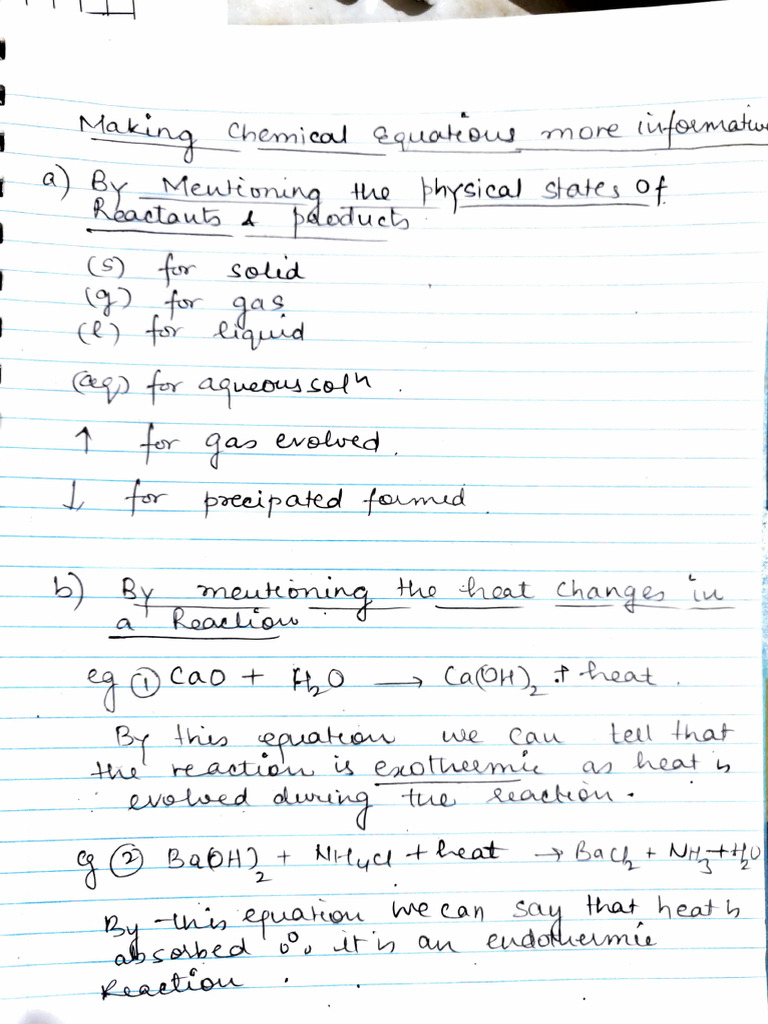 Making Chemical Equations more informative
a) By Mentioning the physical states of
Reactants & products
(s) for solid
(g) for gas
(l) for liquid
(aq) for aqueous solⁿ.
↑ for gas evolved.
↓ for precipated formed.
b) By mentioning the heat changes in
a Reaction
eg ① CaO + H₂O → Ca(OH)₂ + heat.
By this equation we can tell that
the reaction is exothermic as heat is
evolved during the reaction.
eg ② Ba(OH)₂ + NH₄Cl + heat → BaCl₂ + NH₃ + H₂O
By this equation we can say that heat is
absorbed ∴ it is an endothermic
Reaction.